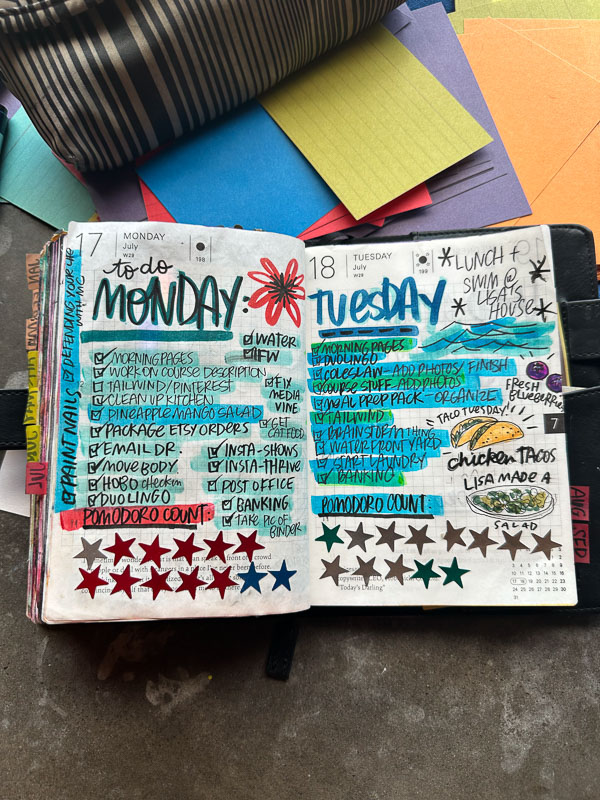 17 MONDAY
July
W29
198
to do
MONDAY:
DEFENDING YOUR LIFE
WITH MC
PAINT NAILS
MORNING PAGES
WORK ON COURSE DESCRIPTION
TAILWIND/PINTEREST
CLEAN UP KITCHEN
PINEAPPLE MANGO SALAD
PACKAGE ETSY ORDERS
EMAIL DR.
MOVE BODY
HOBO checken
DUOLINGO
POMODORO COUNT:
WATER
IFW
FIX
MEDIA
VINE
GET
CAT FOOD
INSTA-SHOWS
INSTA-THRIVE
POST OFFICE
BANKING
TAKE PIC OF
BINDER
18 TUESDAY
July
W29
199
TUESDAY
LUNCH +
SWIM @
LISA'S
HOUSE
MORNING PAGES
DUOLINGO
COLESLAW-ADD PHOTOS/FINISH
COURSE STUFF-ADD PHOTOS
MEAL PREP PACK-ORGANIZE
TAILWIND
BRAINSTORM THING
WATER FRONT YARD
START LAUNDRY
BANKING
POMODORO COUNT:
FRESH
BLUEBERRIES
TACO TUESDAY!
chicken TACOS
LISA MADE A
SALAD
7
"Today's Darling"
AUG
SEP